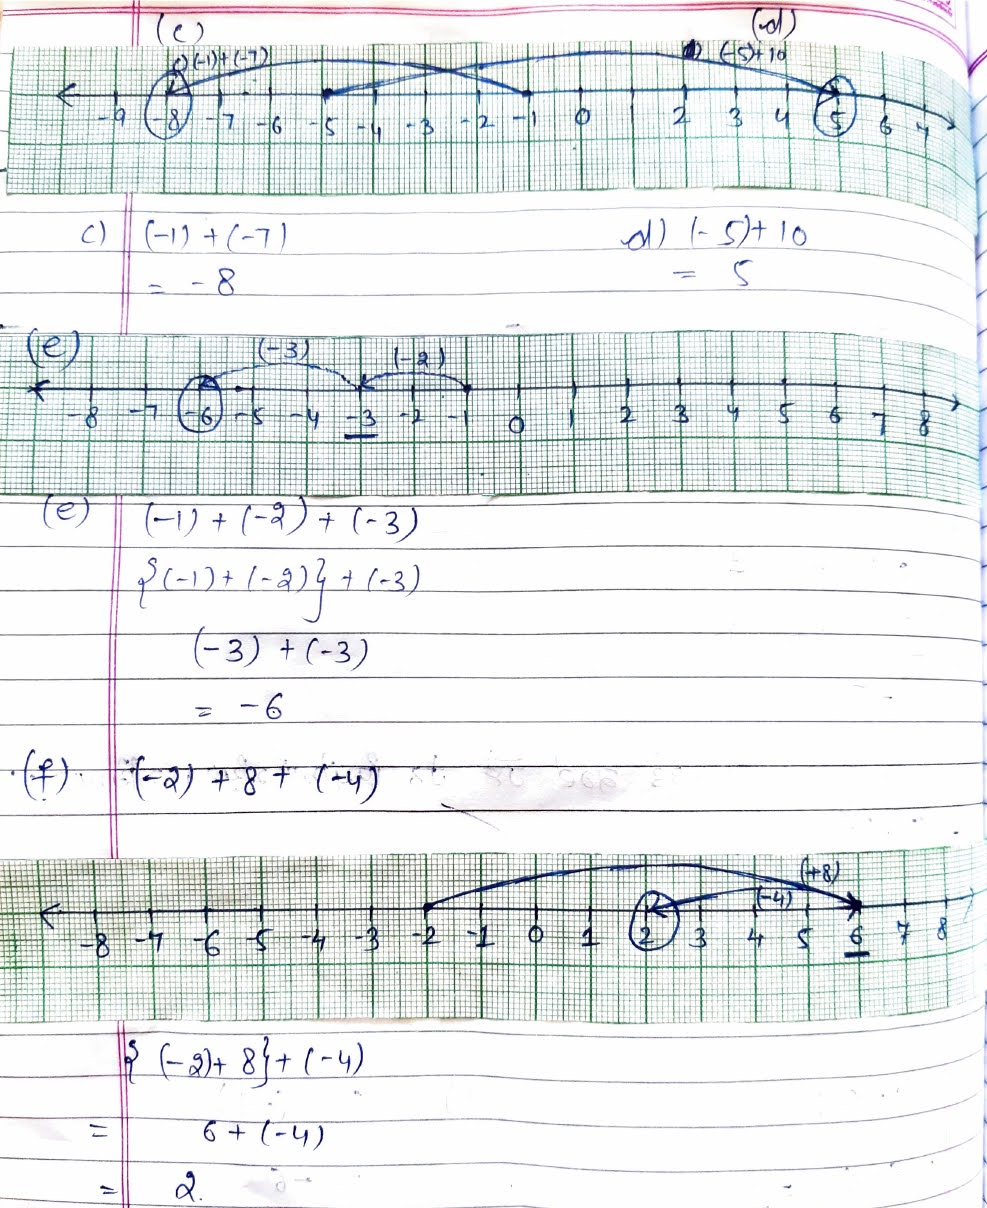 (c) (d)
c) (-1)+(-7) (-5)+10
-9 -8 -7 -6 -5 -4 -3 -2 -1 0 2 3 4 5 6 7
c) (-1) + (-7) d) (-5)+10
= -8 = 5
(e) (-3) (-2)
-8 -7 -6 -5 -4 -3 -2 -1 0 1 2 3 4 5 6 7 8
(e) (-1) + (-2) + (-3)
{(-1) + (-2)} + (-3)
(-3) + (-3)
= -6
(f) (-2) + 8 + (-4)
(+8)
(-4)
-8 -7 -6 -5 -4 -3 -2 -1 0 1 2 3 4 5 6 7 8
{(-2)+ 8} + (-4)
= 6 + (-4)
= 2.